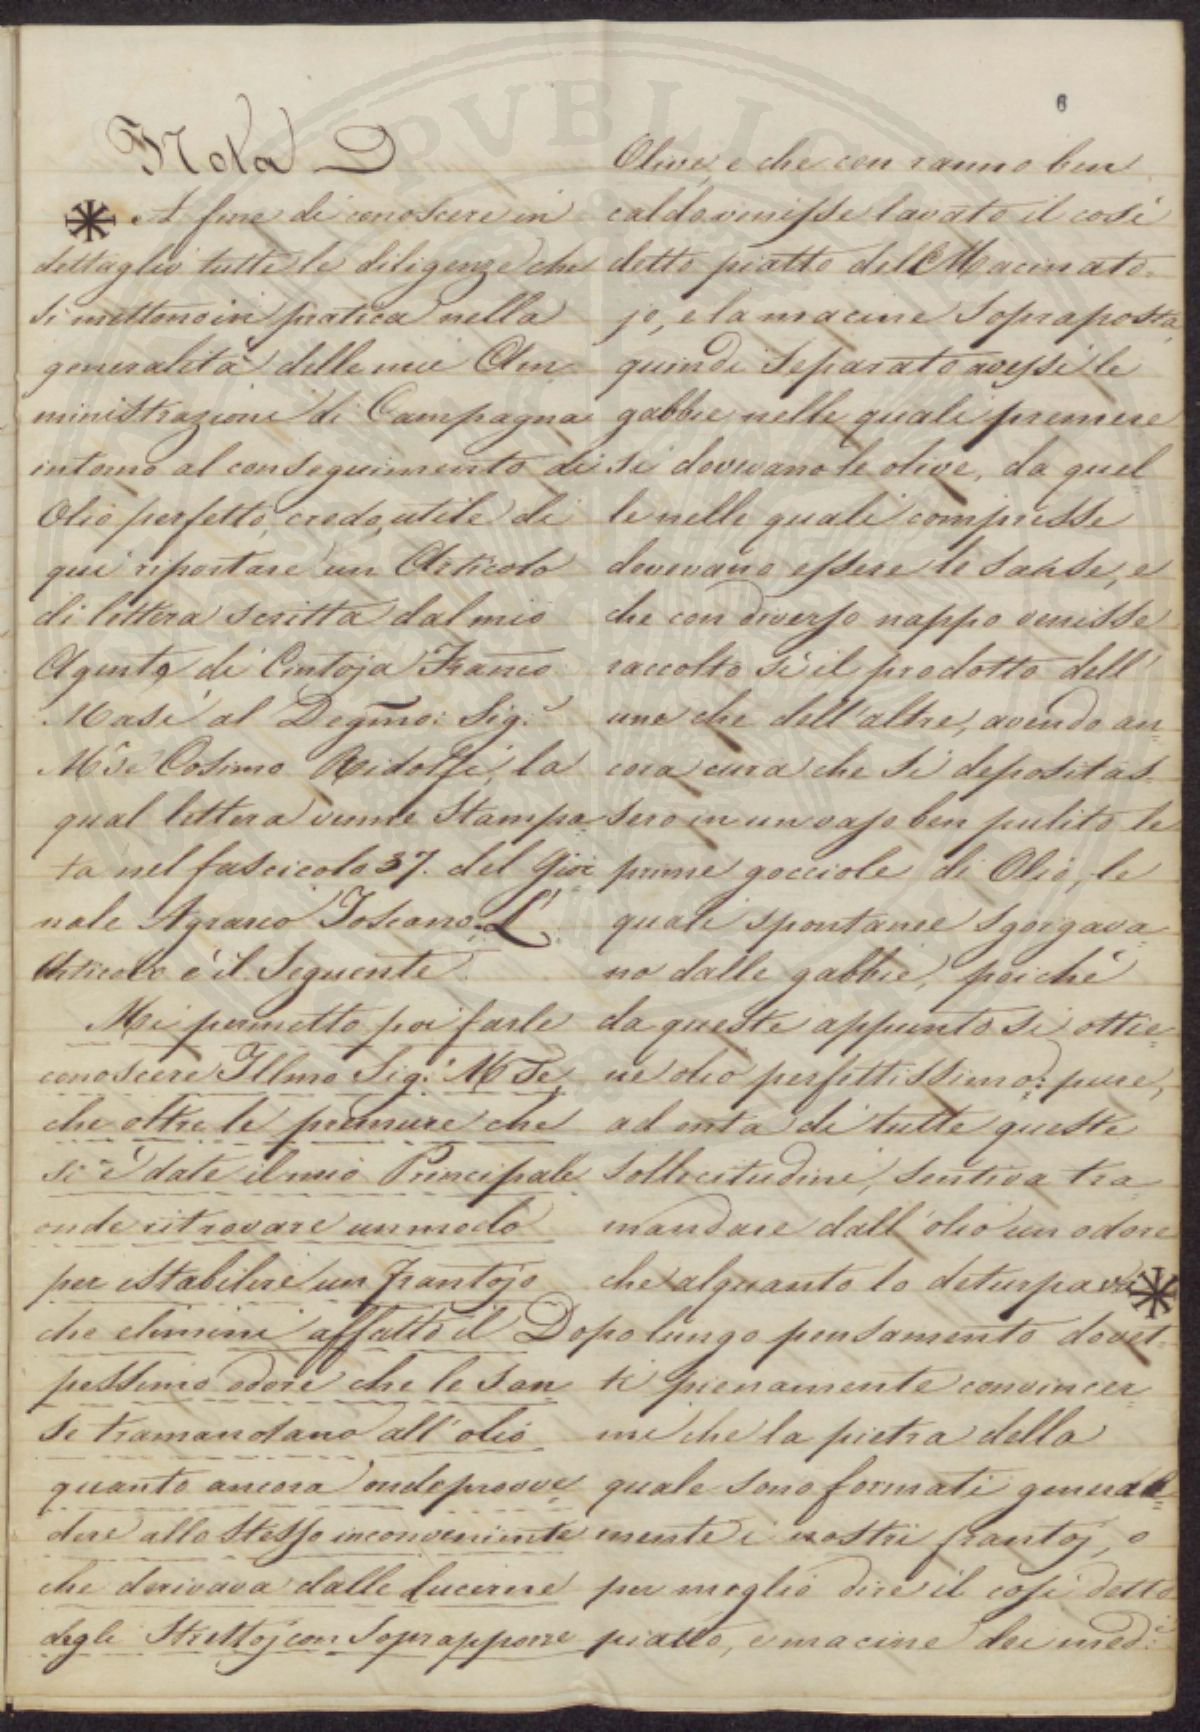 6
Nota D
A fine di conoscere in
dettaglio tutte le diligenze che
si mettono in pratica nella
generalità delle mie Am
ministrazioni di Campagna
intorno al conseguimento di
Olio perfetto, credo, utile di
qui riportare un Articolo
di lettera scritta dal mio
Agente di Cintoja Franco
Masi al Degmo: Sig:r
Mse Cosimo Ridolfi, la
qual lettera venne Stampa
ta nel fascicolo 37. del Gior
nale Agrario Toscano. L'
Articolo è il Seguente
Mi permetto poi farle
conoscere Illmo Sig:r Mse
che oltre le premure che
si è date il mio Principale
onde ritrovare un modo
per istabilire un frantojo
che elimini affatto il
pessimo odore che le san
se tramandano all'olio
quanto ancora onde provve
dere allo stesso inconveniente
che derivava dalle lucerne
degli Strettoj con Soprapporre
Olive, e che con ranno ben
caldo venisse lavato il così
detto piatto del Macinato
jo, e la macine Soprapposta
quindi Separato avessi le
gabbie nelle quali premere
si dovevano le olive, da quel
le nelle quali compresse
dovevano essere le sanse, e
che con diverso nappo venisse
raccolto sì il prodotto dell'
une che dell'altre, avendo an
cora cura che si depositas
sero in un vaso ben pulito le
prime gocciole di Olio, le
quali spontanee sgorgava
no dalle gabbie, poichè
da queste appunto si ottie
ne olio perfettissimo: pure,
ad onta di tutte queste
sollecitudini, sentiva tra
mandare dall'olio un odore
che alquanto lo deturpava
Dopo lungo pensamento dovet
ti pienamente convincer
mi che la pietra della
quale sono formati general
mente i nostri frantoj, o
per meglio dire il così detto
piatto, e macine dei med:i